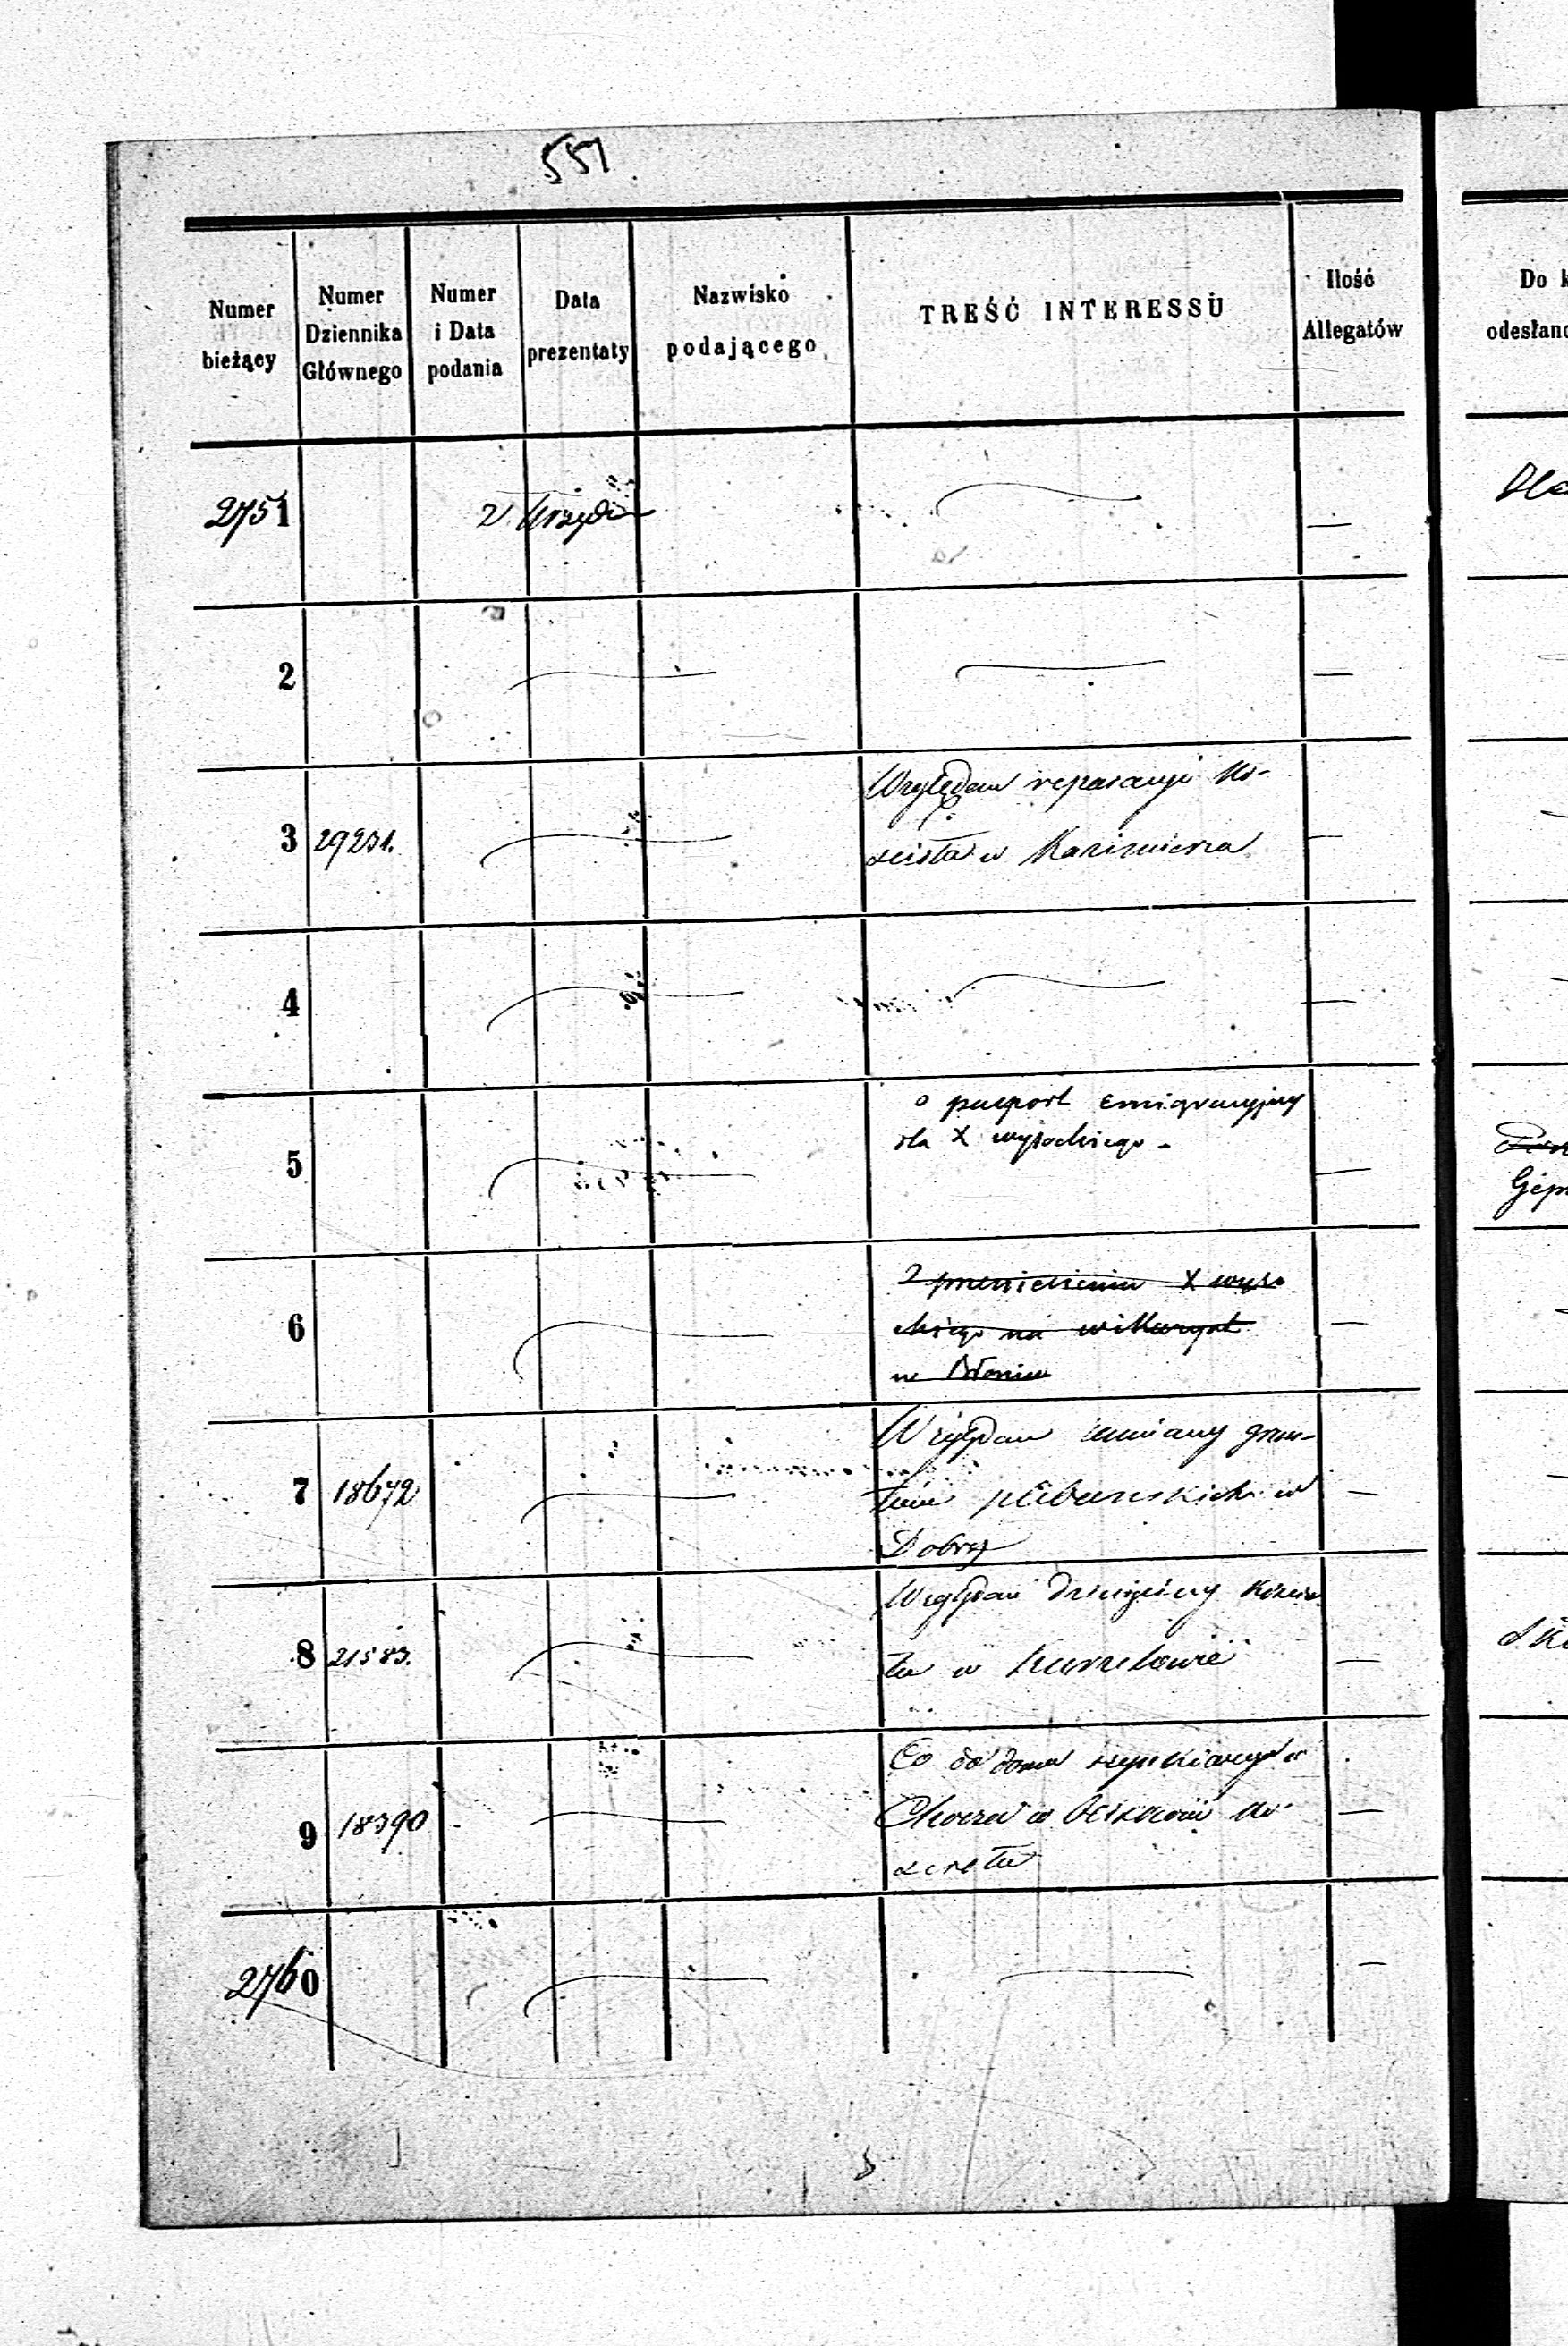 551
Numer bieżący
Numer Dziennika Głównego
Numer i Data podania
Data prezentaty
Nazwisko podającego
TREŚĆ INTERESSU
Ilość Allegatów
Do k
odesłano
2751 z Urzędu
2
3 29231. Względem reparacyi Ko-
ścioła w Kazimierza
4
5 o paszport emigracyjny
dla X Wysockiego
Gep
6 2 przeniesieniu X Wyso
ckiego na wikaryat
w Błoniu
7 18672 Względem zamiany grun-
tów plebańskich w
Dobrej
8 21583. Względem dziesięciny Kościo
ła w Kurzelowie
9 18390 Co do domu
w Ko-
ścioła
2760